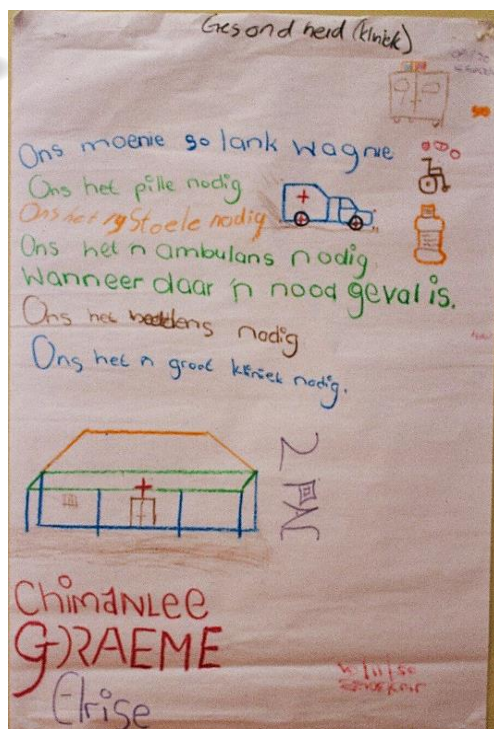 Gesondheid (kliniek)
Ons moenie so lank wagnie
Ons het pille nodig
Ons het rystoele nodig
Ons het n ambulans nodig
Wanneer daar 'n noodgeval is.
Ons het beddens nodig
Ons het n groot kliniek nodig.
2 PAC
CHIMANLEE
GRAEME
Elrise